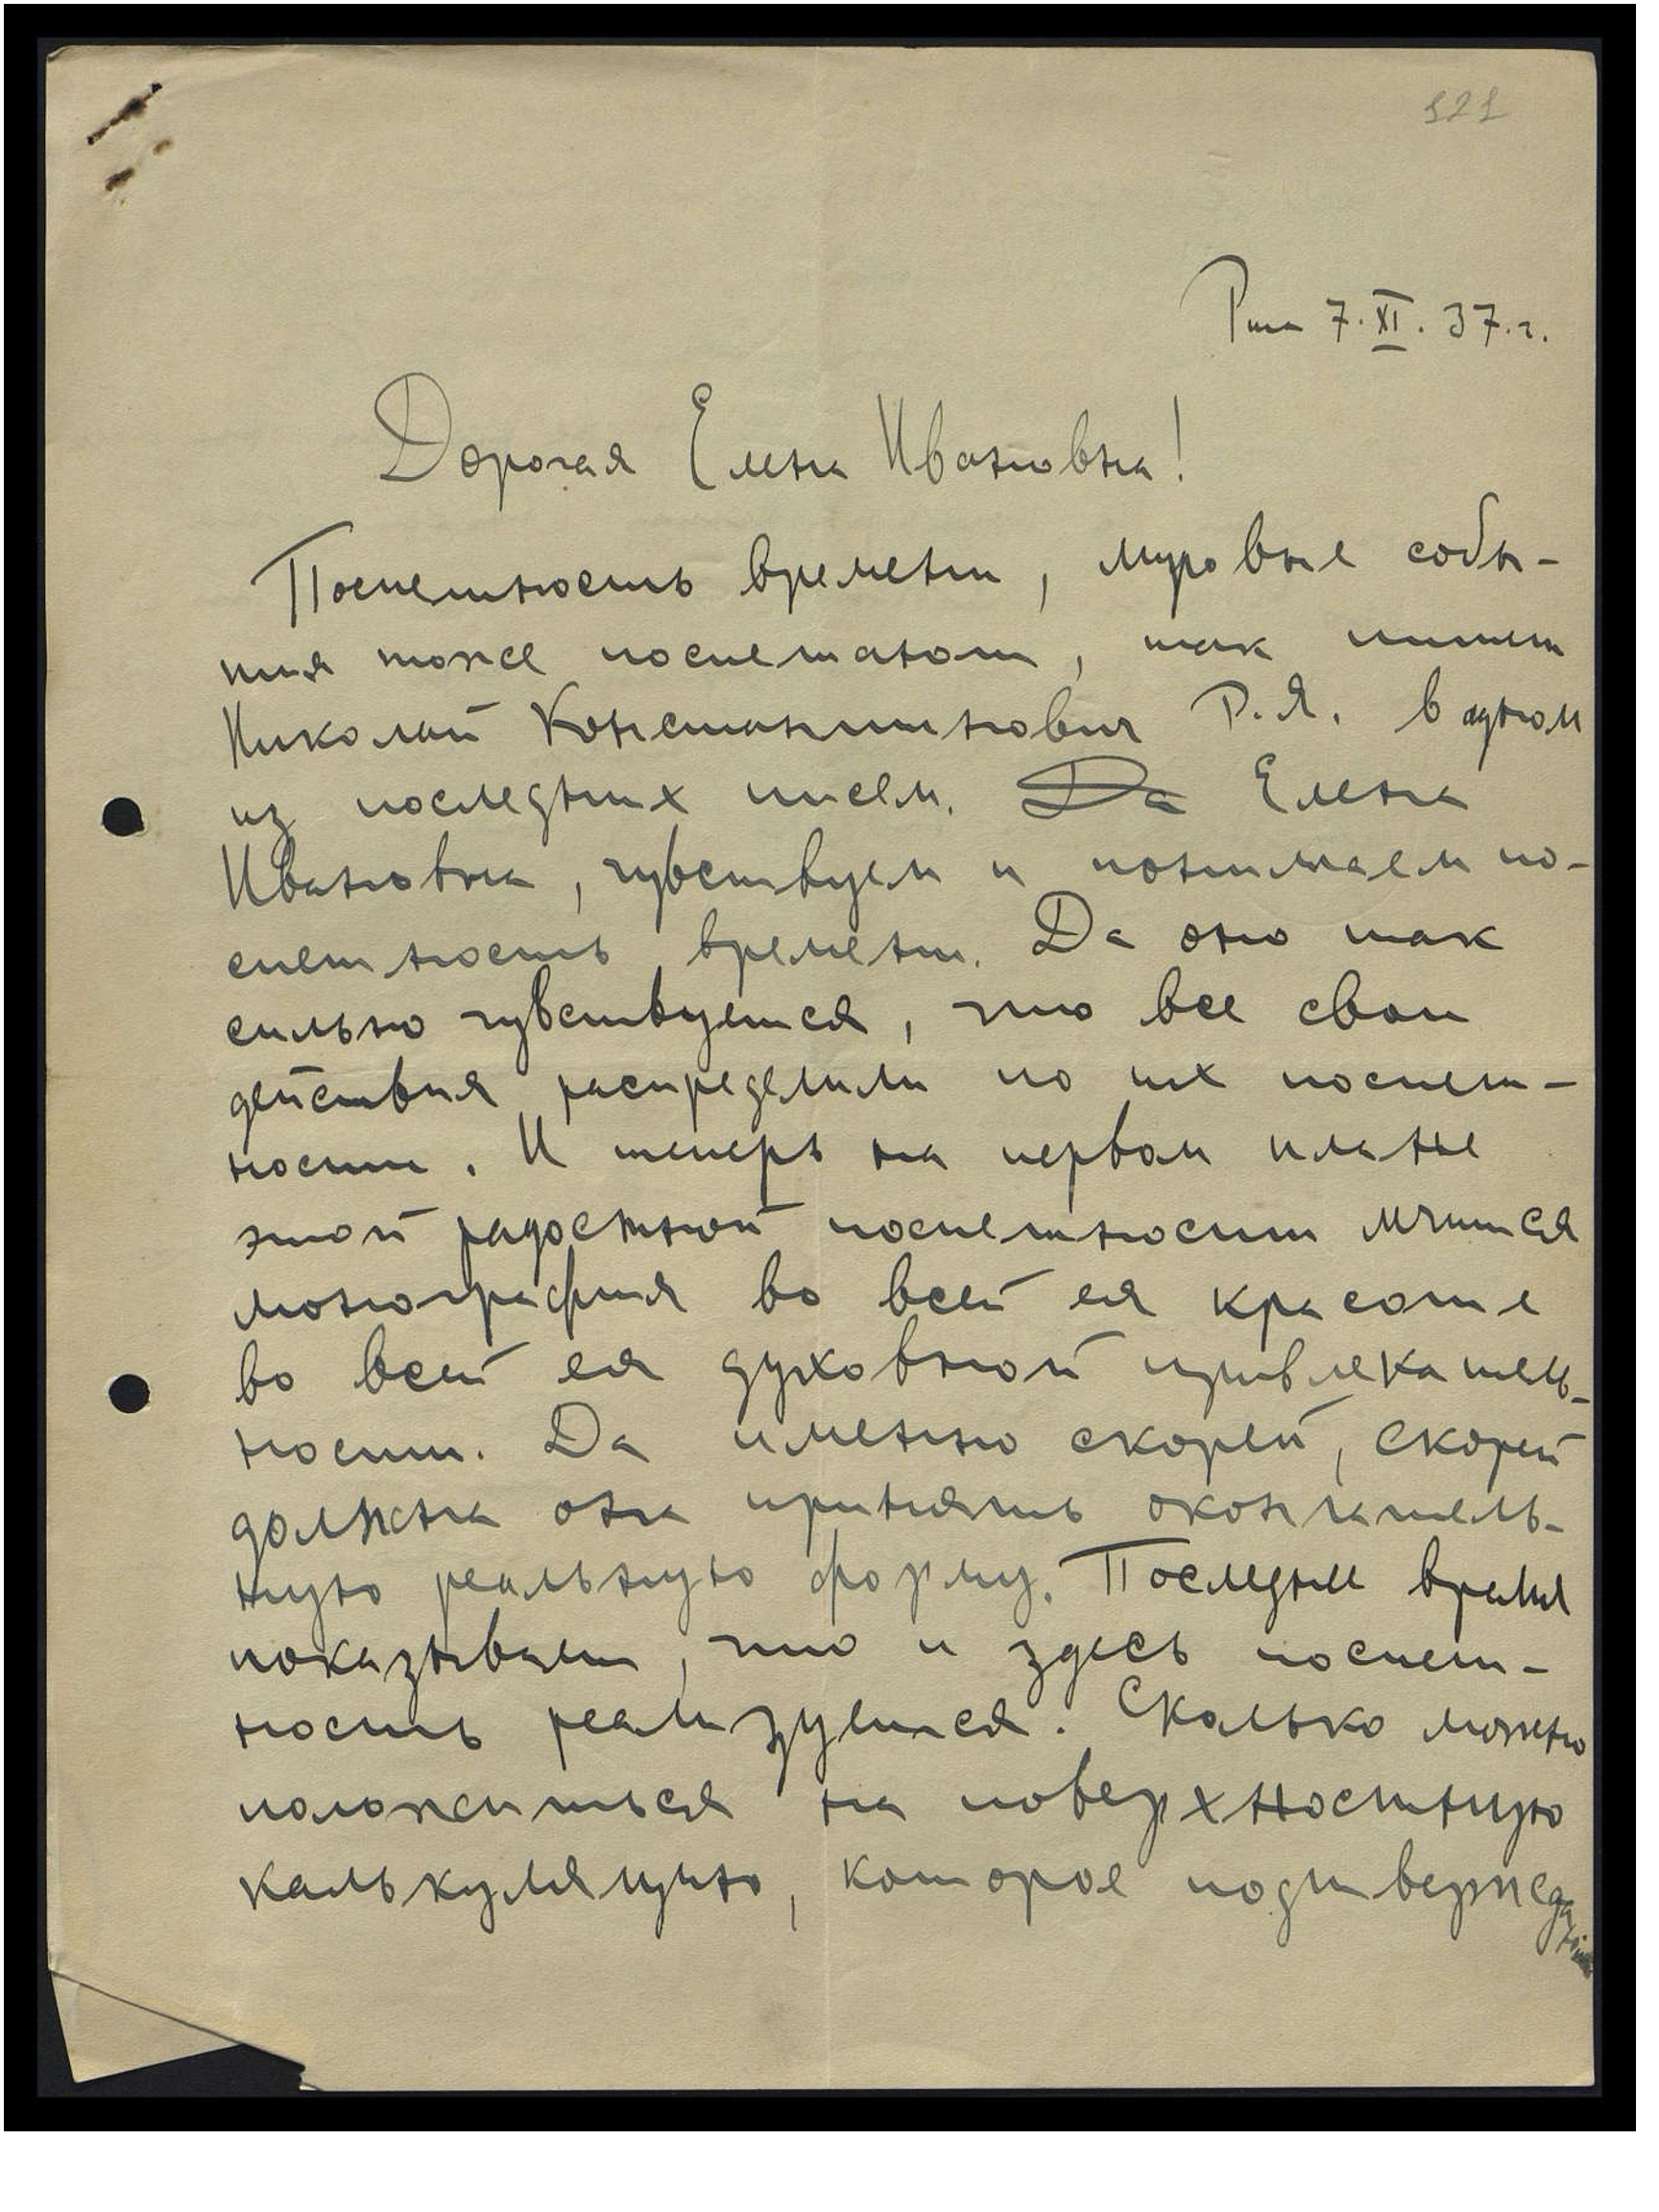 121
Рига 7.XI.37.г.
Дорогая Елена Ивановна!
Поспешность времени, мировые собы-
тия тоже поспешают, так пишет
Николай Константинович Р.Я. в одном
из последних писем. Да Елена
Ивановна, чувствуем и понимаем по-
спешность времени. Да оно так
сильно чувствуется, что все свои
действия распределили по их поспеш-
ности. И теперь на первом плане
этой радостной поспешности мчится
монография во всей ея красоте
во всей ея духовной привлекатель-
ности. Да именно скорей, скорей
должна она принять окончатель-
ную реальную форму. Последнее время
показывает, что и здесь поспеш-
ность реализуется. Сколько можно
положиться на поверхностную
калькуляцию, которое подтвержда